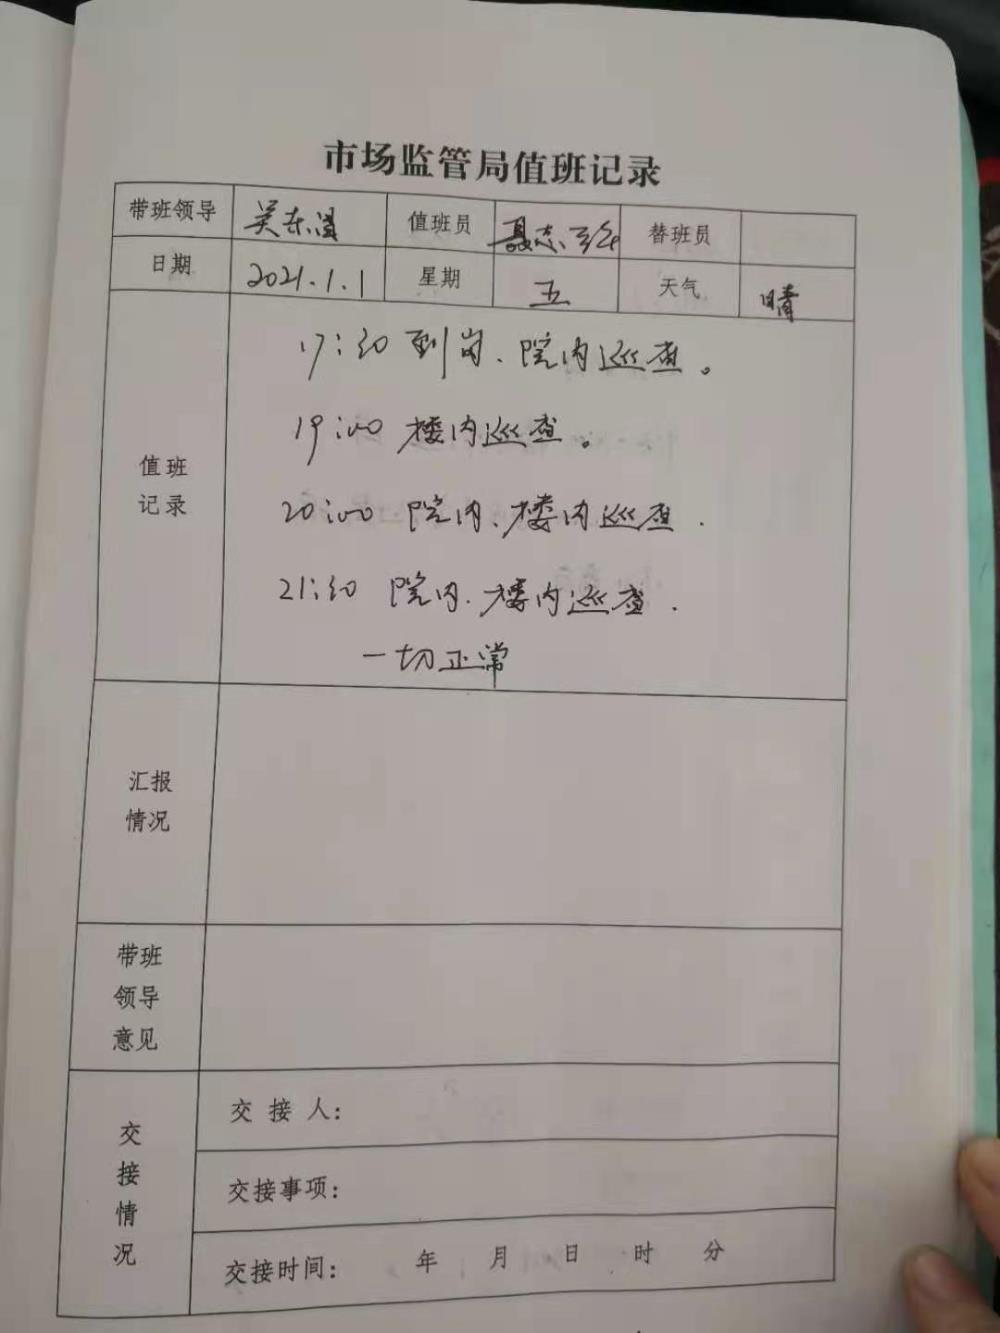 市场监管局值班记录
带班领导 吴东 值班员 聂志 替班员
日期 2021.1.1 星期 五 天气 晴
17:30 到岗、院内巡查。
19:00 楼内巡查。
值班
记录
20:00 院内、楼内巡查.
21:30 院内、楼内巡查.
一切正常
汇报
情况
带班
领导
意见
交接情况
交 接 人:
交接事项:
交接时间: 年 月 日 时 分